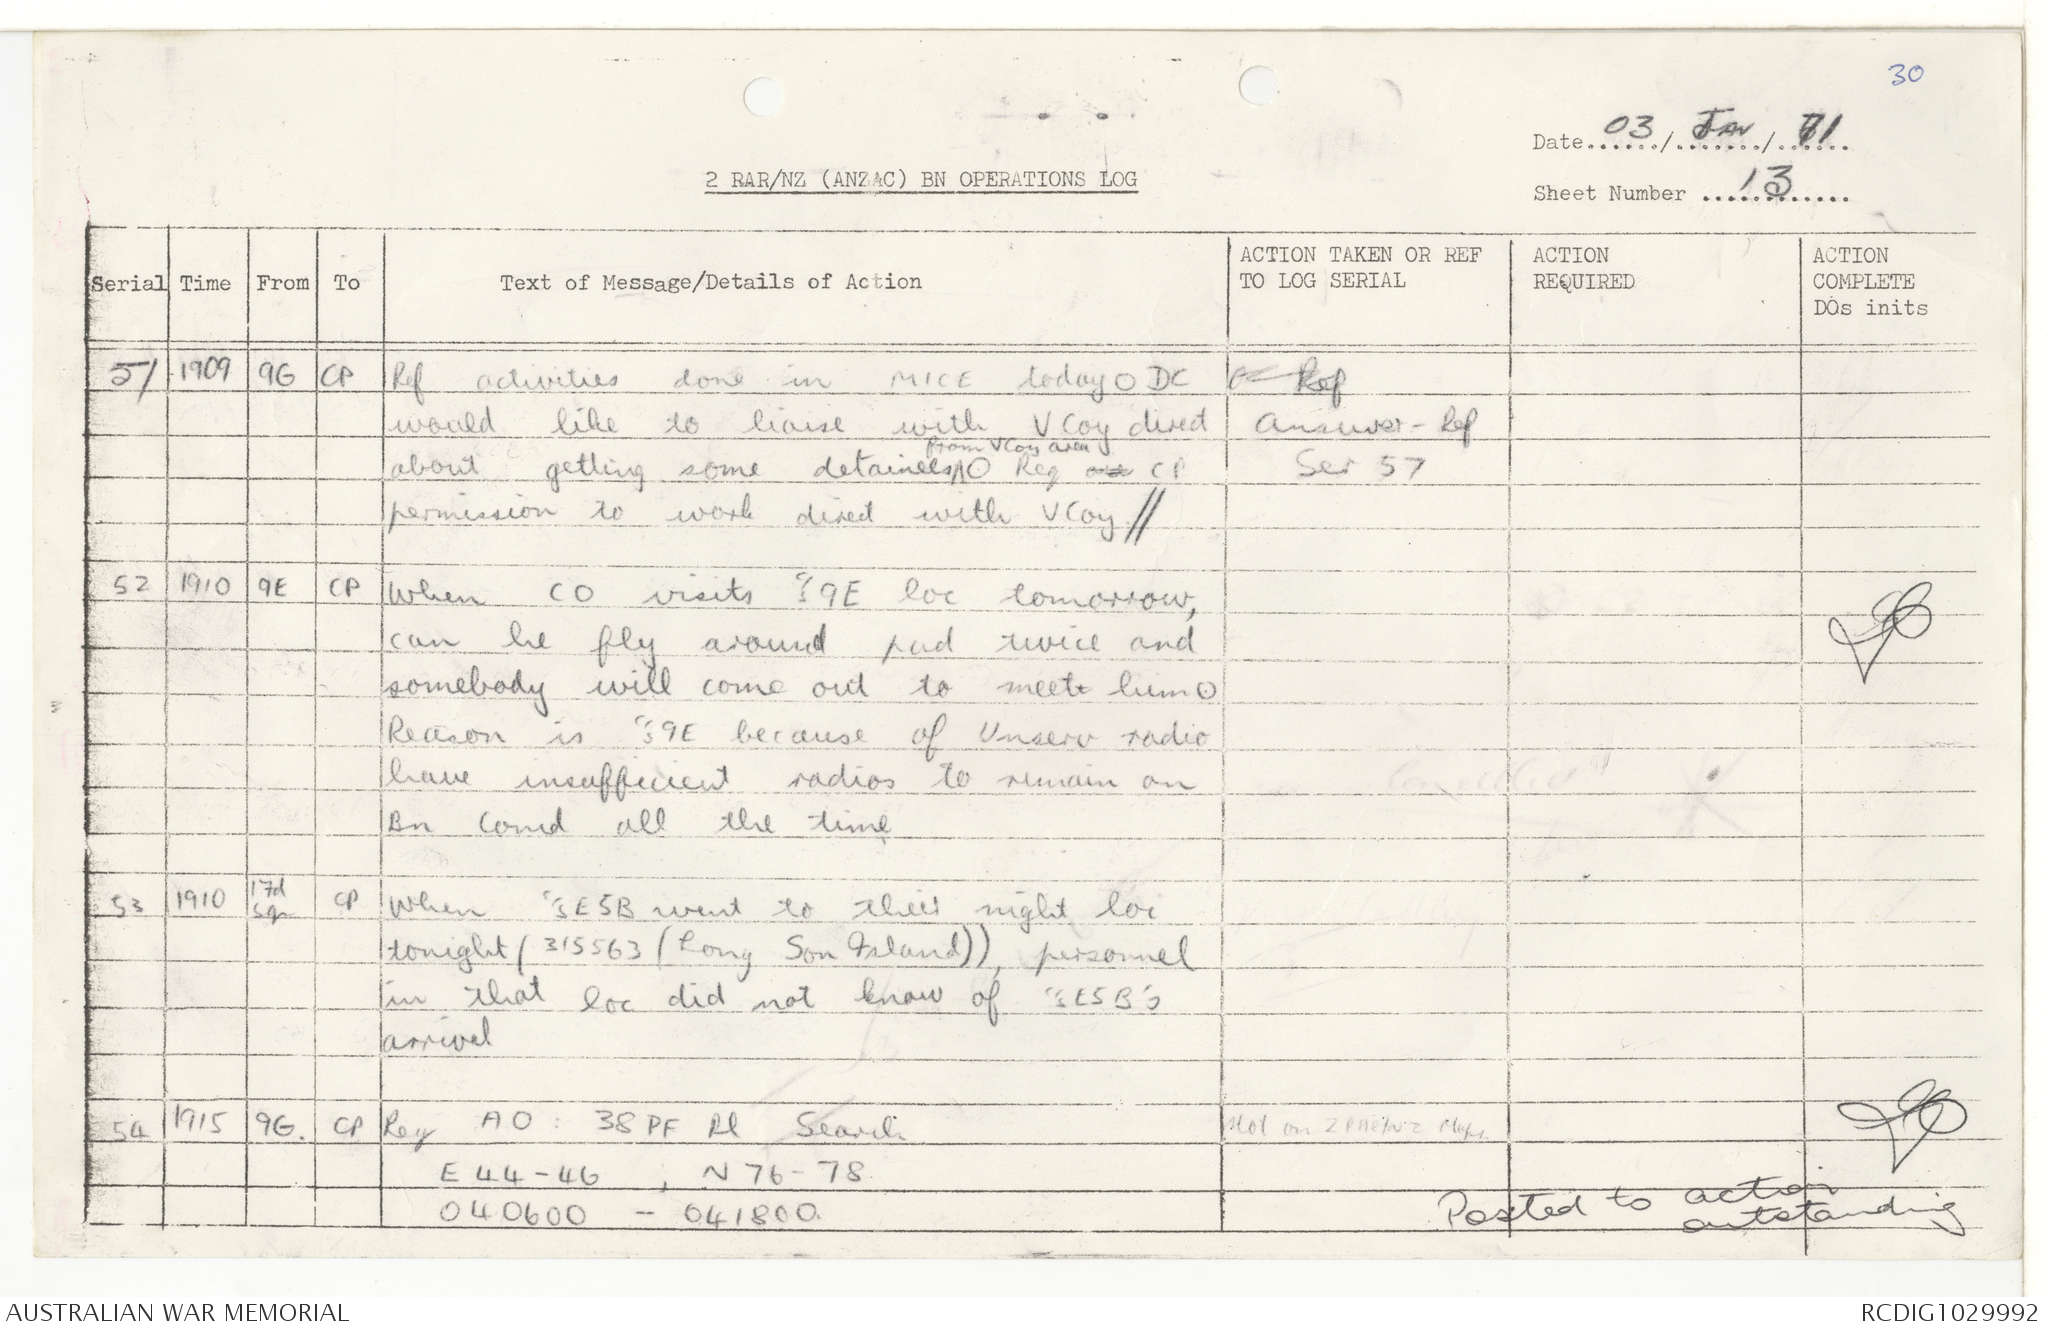 30
Date 03 / JAN / 71
2 RAR/NZ (ANZAC) BN OPERATIONS LOG
Sheet Number 13
Serial Time From To Text of Message/Details of Action ACTION TAKEN OR REF TO LOG SERIAL ACTION REQUIRED ACTION COMPLETE DOs inits
51 1909 9G CP Ref activities done in MICE today O DC Ref
would like to liaise with V Coy direct Answer - Ref
from V Coy area
about getting some detainees O Req CP Ser 57
permission to work direct with V Coy //
52 1910 9E CP When CO visits 9E loc tomorrow,
can he fly around pad twice and
somebody will come out to meet him O
Reason is 9E because of Unserv radio
have insufficient radios to remain on
Bn Comd all the time
53 1910 17d Sqn CP When E5B went to their night loc
tonight (315563 (Long Son Island)), personnel
in that loc did not know of E5B's
arrival
54 1915 9G. CP Req AO : 38 PF Pl Search Not on
E 44-46 , N 76-78
040600 - 041800.
Posted to action
outstanding
AUSTRALIAN WAR MEMORIAL
RCDIG1029992